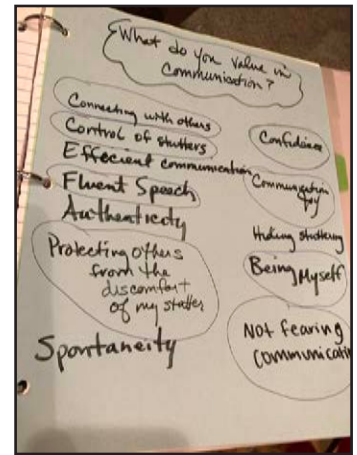 What do you value in
Communication?
Connecting with others
Control of stutters
Effecient communication
Fluent Speech
Authenticity
Protecting others
from the
discomfort
of my stutter
Spontaneity
Confidence
Communication
Joy
Hiding stuttering
Being Myself
Not fearing
Communicatin